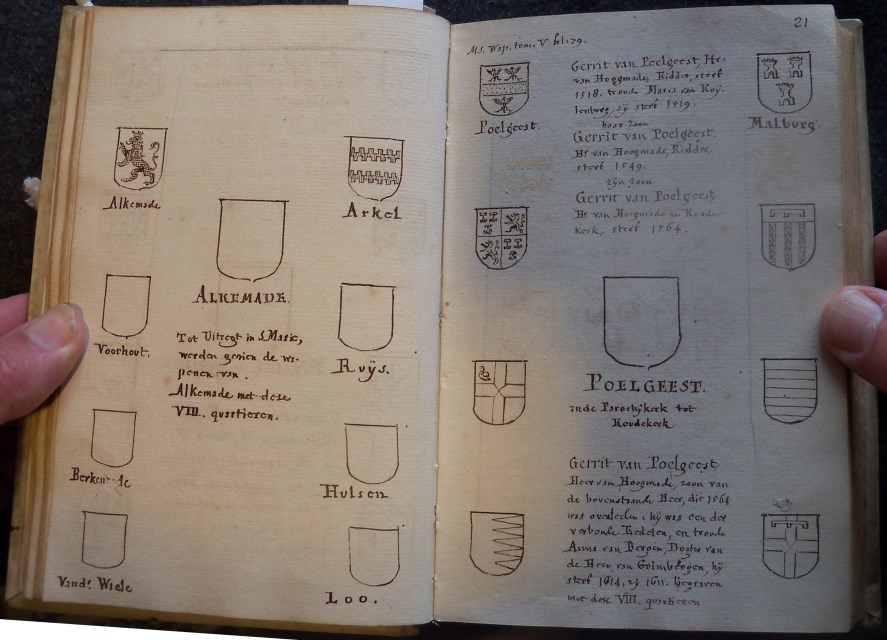 Alkemade
Arkel
ALKEMADE.
Voorhout.
Tot Uitregt in S. Marie,
werden gesien de wa-
penen van
Alkemade met dese
VIII. quartieren.
Ruÿs.
Hulsen
Vandr Wiele
Loo.
21
MS. Wap. tom. V fol. 79.
Gerrit van Poelgeest, He-
van Hoogmade, Ridder, sterf
1518. troude Maria van Kuÿ-
lenburg, zÿ sterf 1519.
haar zoon
Poelgeest.
Malburg.
Gerrit van Poelgeest,
Hr van Hoogmade, Ridder,
sterf 1549.
zÿn zoon
Gerrit van Poelgeest
Hr van Hoogmade en Koude-
kerk, sterf 1564.
POELGEEST.
inde Parochÿkerk tot
Koudekerk
Gerrit van Poelgeest,
Heer van Hoogmade, zoon van
de bovenstaande Heer, die 1564
was overleden, hÿ was een der
verbonde Eedelen, en troude
Anna van Bergen, Dogter van
de Heer van Grimbergen, hÿ
sterf 1614, zÿ 1611. begraven
met dese VIII. quartieren